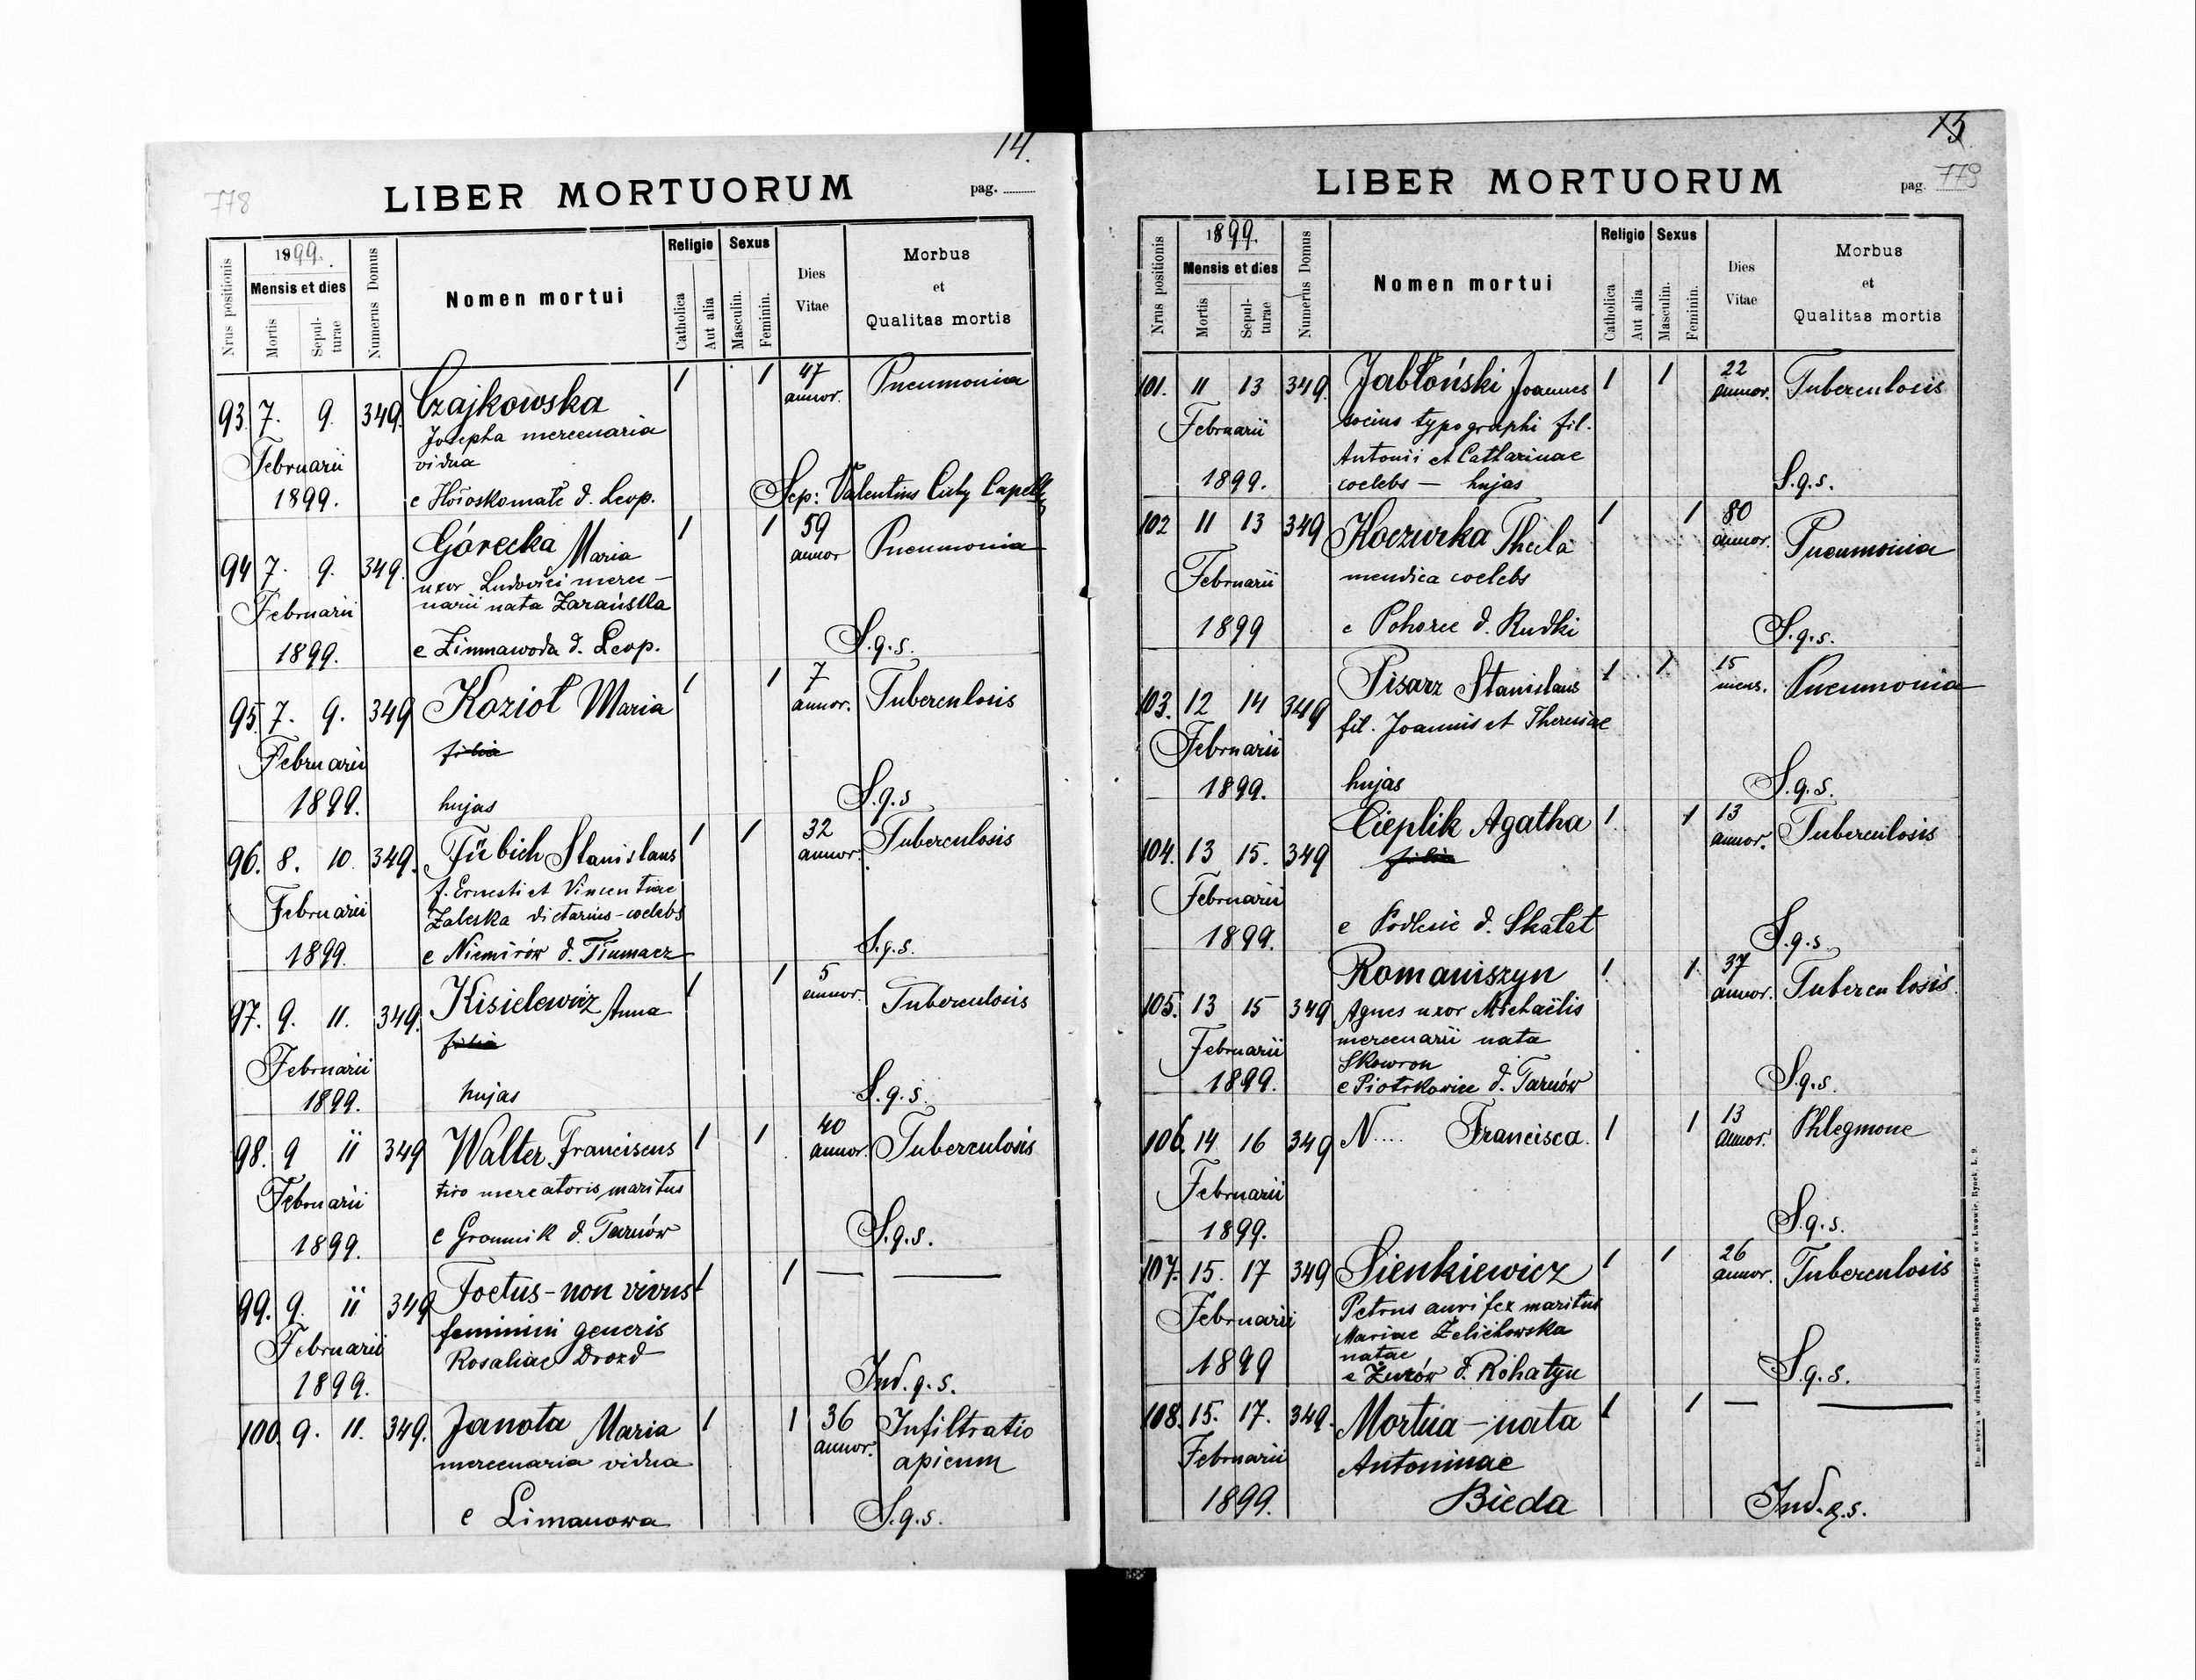 14.
778
LIBER MORTUORUM
pag.
Nrus positionis
1899.
Mensis et dies
Mortis
Sepul-
turae
Numerus Domus
Nomen mortui
Religio
Catholica
Aut alia
Sexus
Masculin.
Feminin.
Dies
Vitae
Morbus
et
Qualitas mortis
93. 7. 9. 349. Czajkowska 1 1 47 Pneumonia
annor.
Josepha mercenaria
Februarii vidua
1899. e Hołoskomate d. Leop. Sep: Valentius Cichy Capell
94 7. 9. 349. Górecka Maria 1 1 59 Pneumonia
annor
uxor Ludovici merce-
Februarii narii nata Zarańska
1899. e Zimnawoda d. Leop. S.q.s.
95. 7. 9. 349 Kozioł Maria 1 1 7 Tuberculosis
annor.
Februarii filia
1899. hujas S.q.s
96. 8. 10. 349. Fübich Stanislaus 1 1 32 Tuberculosis
annor.
f. Ernesti et Vincentiae
Februarii Zaleska dictarius - coelebs
1899. e Niemirów d. Tłumacz S.q.s.
97. 9. 11. 349. Kisielewicz Anna 1 1 5 Tuberculosis
annor.
Februarii filia
1899. hujas S.q.s.
98. 9 11 349 Walter Franciscus 1 1 40 Tuberculosis
annor.
Februarii tiro mercatoris maritus
1899. e Gromnik d. Tarnów S.q.s.
99. 9. 11 349 Foetus - non vivus 1 1 — —
feminini generis
Februarii Rosaliae Drozd
1899. Ind. q.s.
100. 9. 11. 349. Janota Maria 1 1 36 Infiltratio
annor. apicum
mercenaria vidua
e Limanowa S.q.s.
15
LIBER MORTUORUM
pag. 779
Nrus positionis
1899.
Mensis et dies
Mortis
Sepul-
turae
Numerus Domus
Nomen mortui
Religio
Catholica
Aut alia
Sexus
Masculin.
Feminin.
Dies
Vitae
Morbus
et
Qualitas mortis
101. 11 13 349. Jabłoński Joannes 1 1 22 Tuberculosis
annor.
Februarii socius typographi fil.
Antonii et Catharinae
1899. coelebs — hujas S.q.s.
102 11 13 349 Koczurka Thecla 1 1 80 Pneumonia
annor.
Februarii mendica coelebs
1899 e Pohorce d. Rudki S.q.s.
103. 12 14 349 Pisarz Stanislaus 1 1 15 Pneumonia
mens.
fil. Joannis et Theresiae
Februarii
1899. hujas S.q.s.
104. 13 15. 349 Cieplik Agatha 1 1 13 Tuberculosis
annor.
filia
Februarii
1899. e Podlesie d. Skałat S.q.s.
105. 13 15 349 Romaniszyn 1 1 37 Tuberculosis
annor.
Agnes uxor Michaëlis
Februarii mercenarii nata
Skowron
1899. e Piotrkowice d. Tarnów S.q.s.
106. 14 16 349 N.... Francisca. 1 1 13 Phlegmone
annor.
Februarii
1899. S.q.s.
107. 15. 17 349 Sienkiewicz 1 1 26 Tuberculosis
annor.
Februarii Petrus aurifex maritus
Mariae Zelichowska
natae
1899 e Żurów d. Rohatyn S.q.s.
108. 15. 17. 349. Mortua - nata 1 1 — —
Februarii Antoninae
1899. Bieda Ind. q.s.
Do nabycia w drukarni Szczęsnego Bednarskiego we Lwowie, Rynek L. 9.